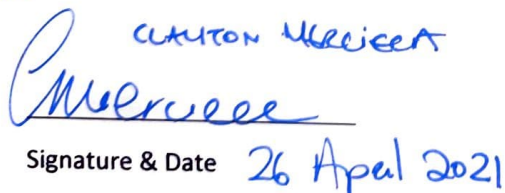 CLAYTON MERCIECA
CMercieca
Signature & Date 26 April 2021